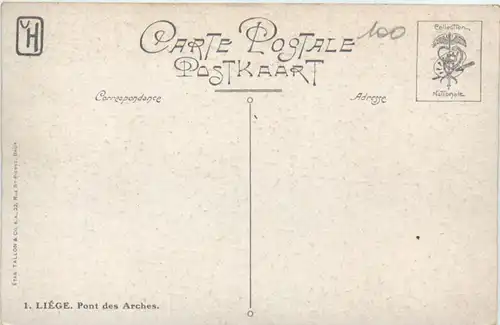 VH
CARTE POSTALE
POSTKAART
100
Collection
Nationale
Correspondance
Adresse
1. LIÉGE. Pont des Arches.